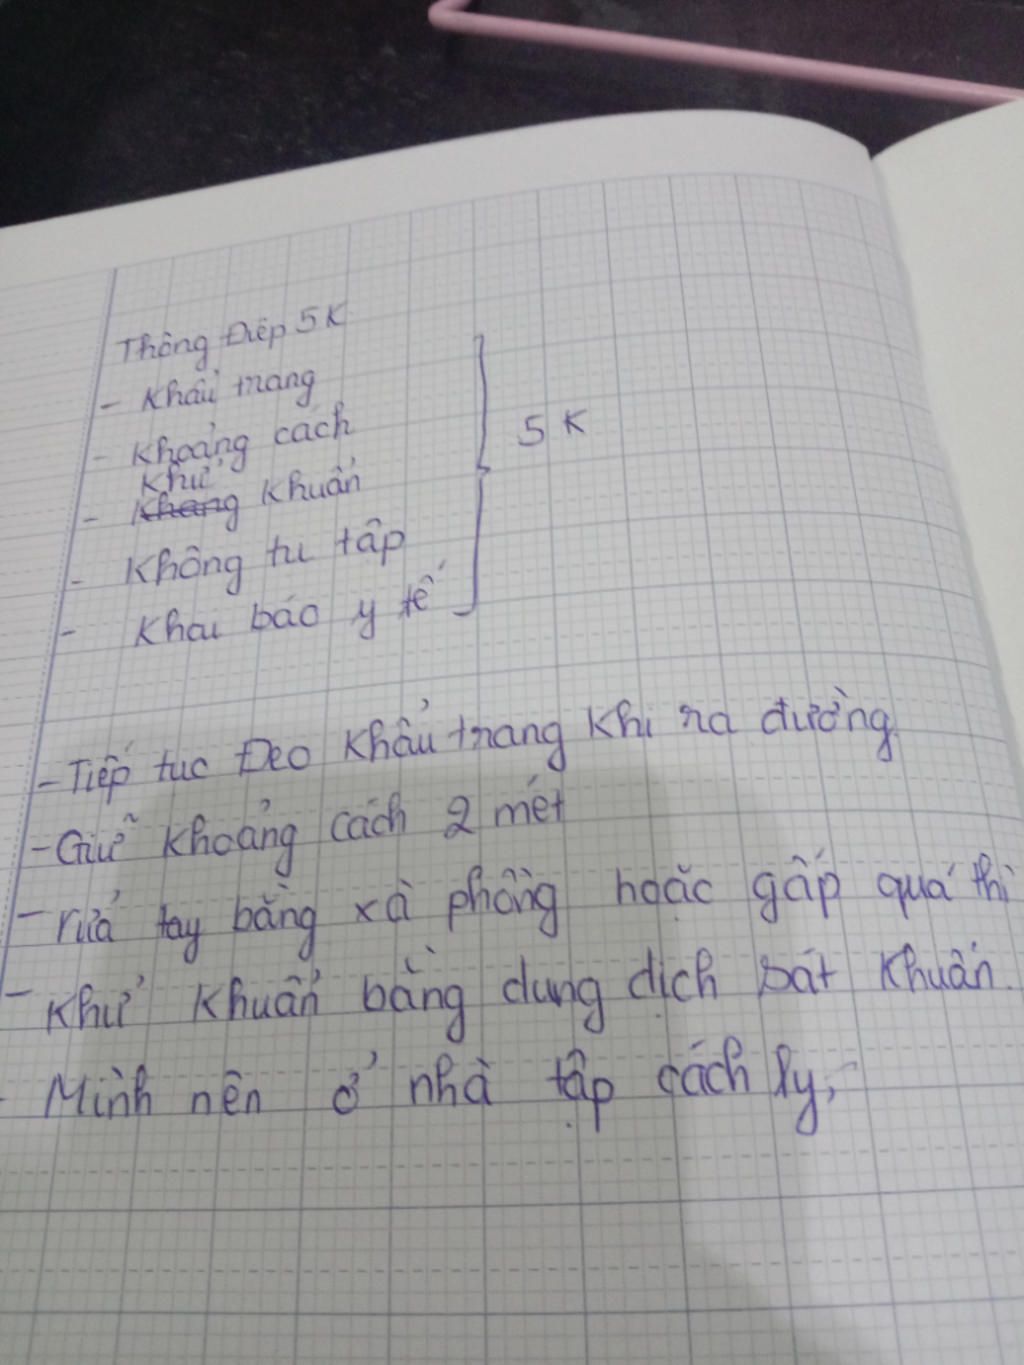 Thông Điệp 5K
- Khẩu trang
- Khoảng cách
Khử
- Khang Khuẩn
- Không tu tập
- Khai báo y tế
5K
- Tiếp tục Đeo Khẩu trang Khi ra đường
- Giữ Khoảng cách 2 mét
- rửa tay bằng xà phồng hoặc gấp quá thì
- Khử Khuẩn bằng dung dịch sát Khuẩn.
- Mình nên ở nhà tập cách ly,